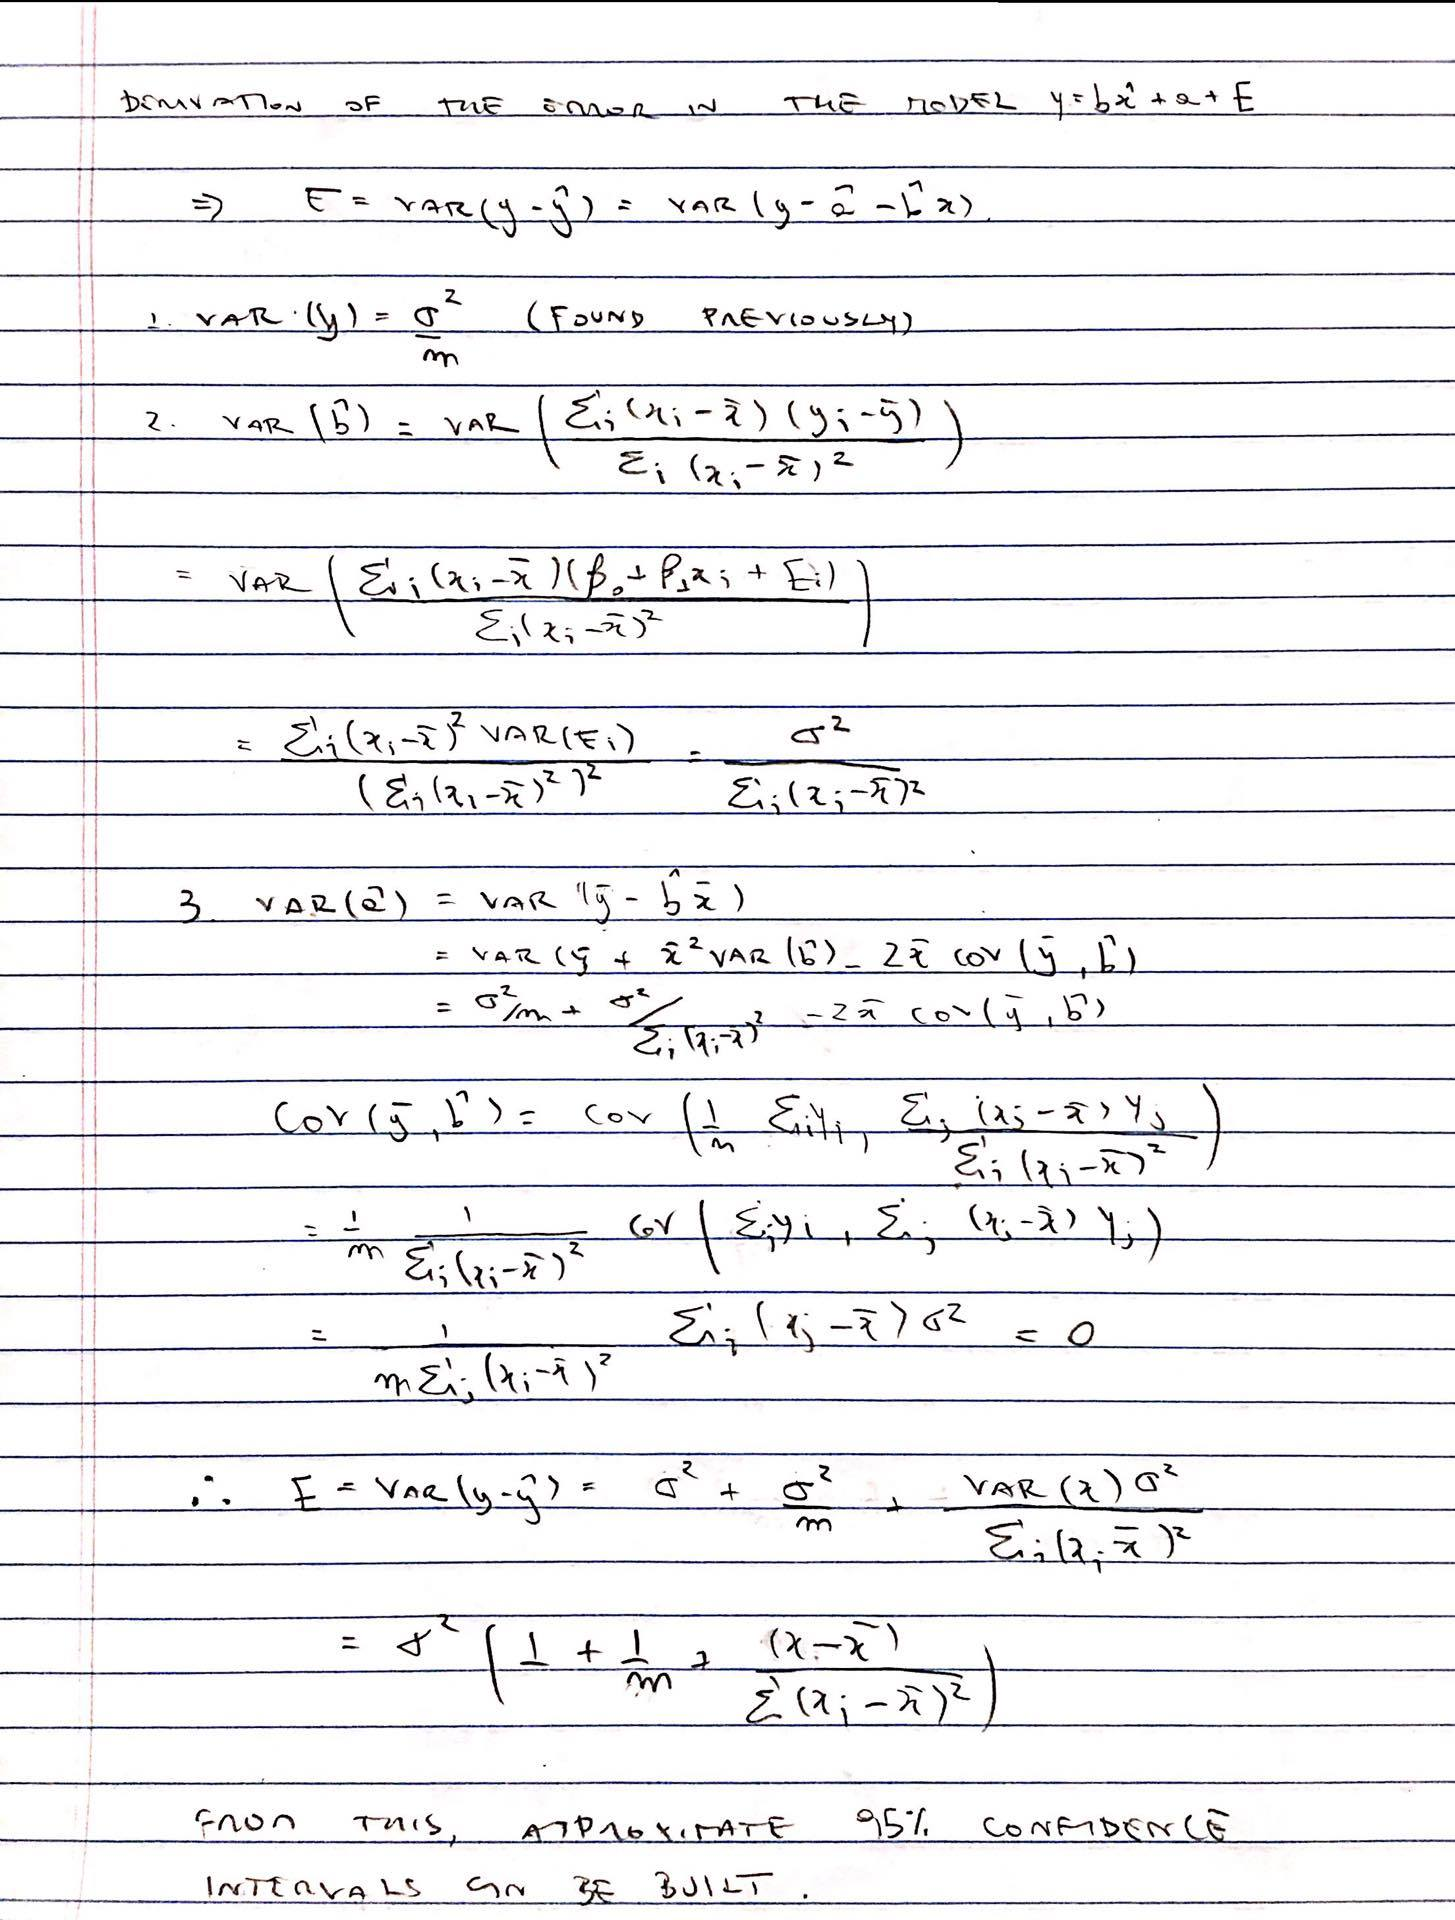 DERIVATION OF THE ERROR IN THE MODEL y = bx̂ + a + E
⇒ E = VAR(y - ŷ) = VAR(y - â - b̂x).
1. VAR.(ȳ) = σ²/m (FOUND PREVIOUSLY)
2. VAR(b̂) = VAR(Σi(xi - x̄)(yi - ȳ) / Σi(xi - x̄)²)
= VAR(Σi(xi - x̄)(β₀ + β₁xi + Ei) / Σi(xi - x̄)²)
= Σi(xi - x̄)² VAR(Ei) / (Σi(xi - x̄)²)² = σ² / Σi(xi - x̄)²
3. VAR(â) = VAR(ȳ - b̂x̄)
= VAR(ȳ + x̄² VAR(b̂) - 2x̄ COV(ȳ, b̂)
= σ²/m + σ²/Σi(xi - x̄)² - 2x̄ COV(ȳ, b̂)
COV(ȳ, b̂) = COV(1/m Σi yi, Σj(xj - x̄)yj / Σi(xi - x̄)²)
= 1/m 1/Σi(xi - x̄)² COV(Σi yi, Σj(xj - x̄)yj)
= 1/mΣi(xi - x̄)² Σj(xj - x̄)σ² = 0
∴ E = VAR(y - ŷ) = σ² + σ²/m + VAR(x)σ² / Σi(xi x̄)²
= σ²(1 + 1/m + (x - x̄) / Σ(xi - x̄)²)
FROM THIS, APPROXIMATE 95% CONFIDENCE
INTERVALS CAN BE BUILT.